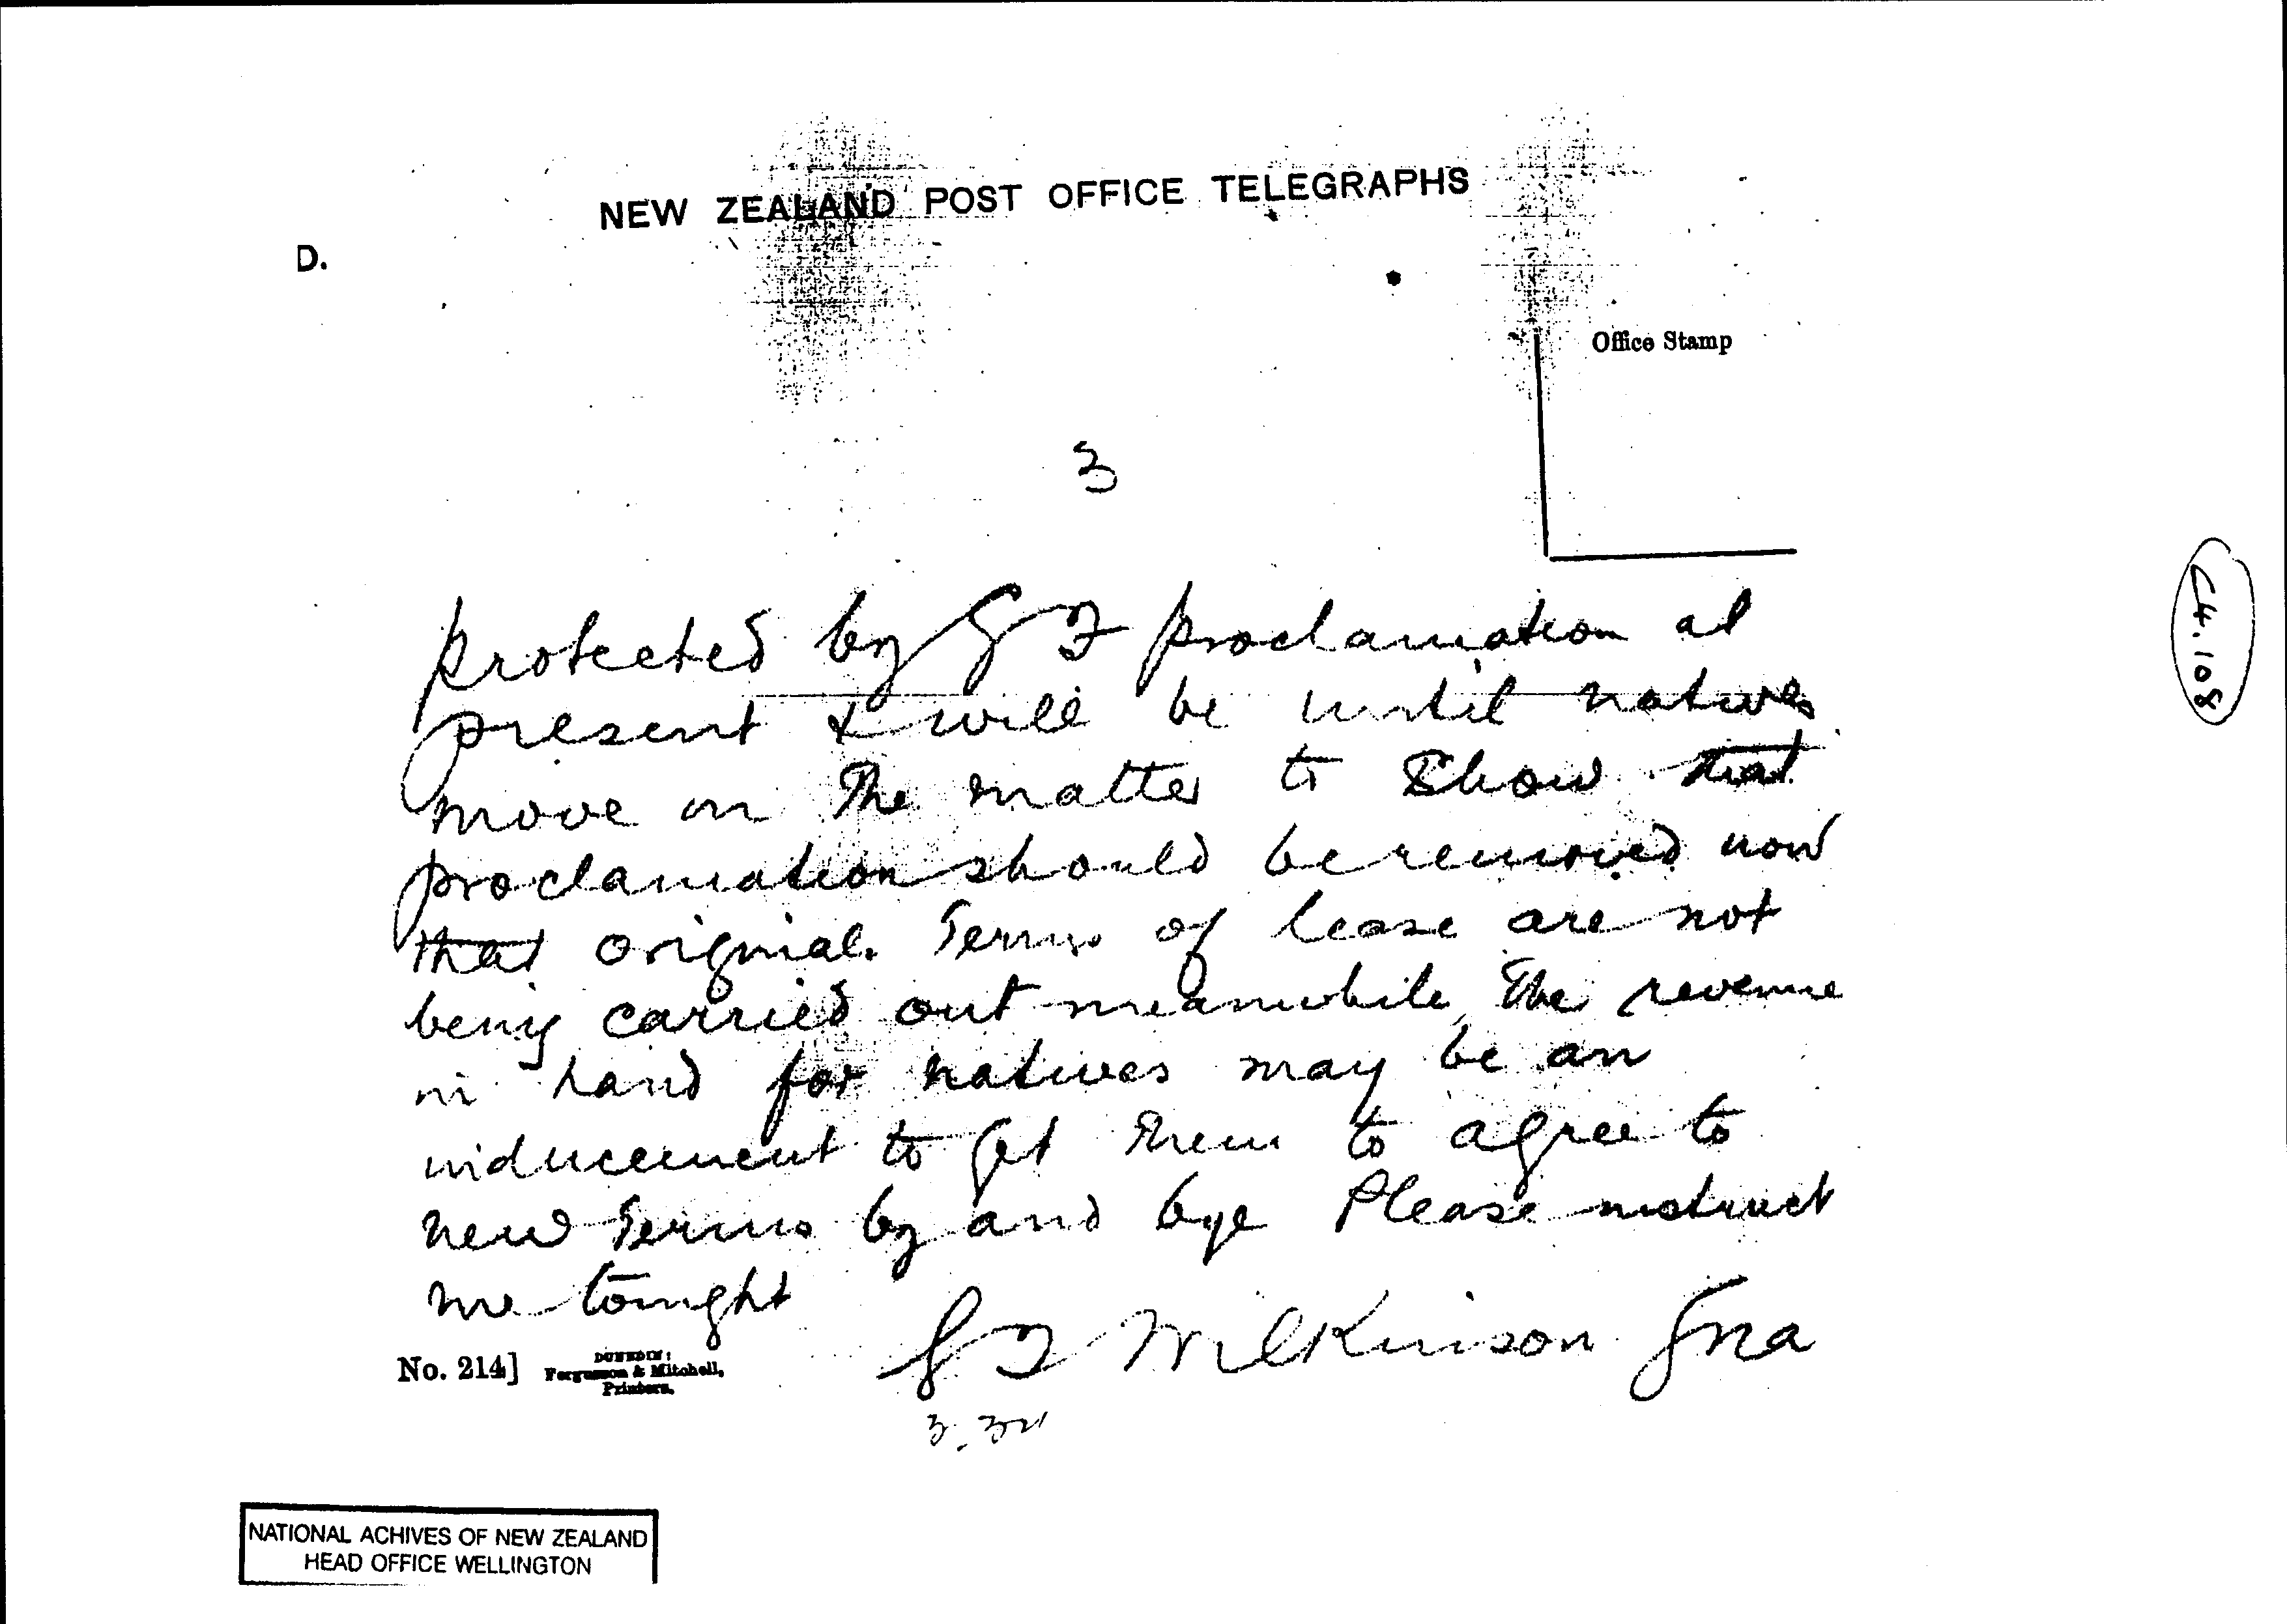 NEW ZEALAND POST OFFICE TELEGRAPHS
D.
Office Stamp
3
protected by G F proclamation at
present & will be until natives
move in the matter to Show that
proclamation should be removed now
that original Terms of lease are not
being carried out meanwhile The revenue
in hand for natives may be an
inducement to get Them to agree to
new Terms by and bye Please instruct
me tonight
G T Wilkinson
No. 214]
DUNEDIN:
Fergusson & Mitchell,
Printers.
C4.108
NATIONAL ACHIVES OF NEW ZEALAND
HEAD OFFICE WELLINGTON